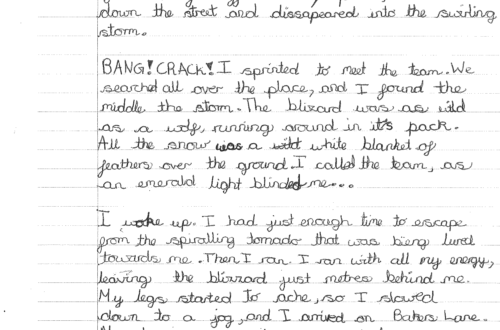 down the street and dissapeared into the swirling
storm.
BANG! CRACK! I sprinted to meet the team. We
searched all over the place, and I found the
middle the storm. The blizard was as wild
as a wolf, running around in it's pack.
All the snow was a white blanket of
feathers over the ground. I called the team, as
an emerald light blinded me...
I woke up. I had just enough time to escape
from the spiralling tornado that was bieng lured
towards me. Then I ran. I ran with all my energy,
leaving the blizzard just metres behind me.
My legs started to ache, so I slowed
down to a jog, and I arrived on Bakers Lane.